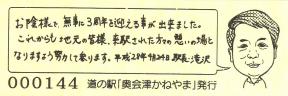 お陰様で、無事に3周年を迎える事が出来ました。
これからも地元の皆様、来駅された方々の憩いの場と
なりますよう努力して参ります。平成28年9月24日駅長・滝沢
000144 道の駅「奥会津かねやま」発行